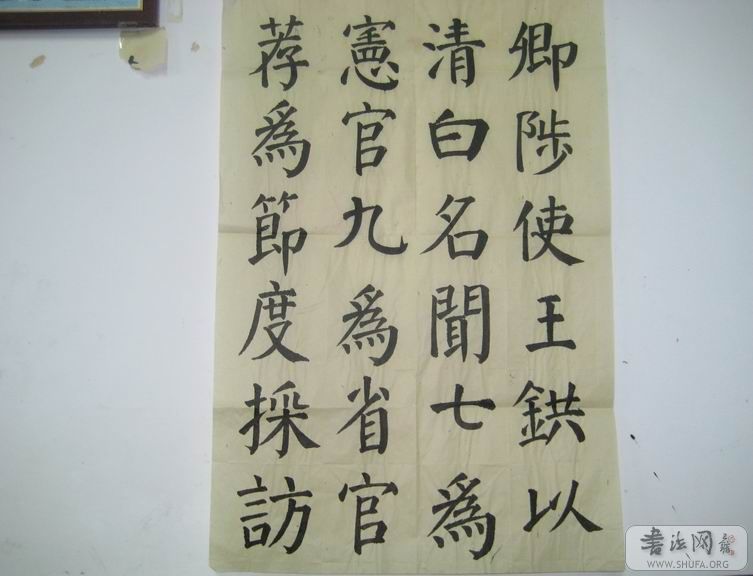 卿陟使王鉷以
清白名聞七為
憲官九為省官
荐為節度採訪
书法网
WWW.SHUFA.ORG